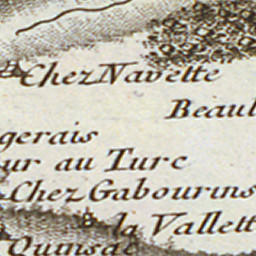 Chez Navette
Beaul
gerais
ur au Turc
Chez Gabourins
la Vallett
Quinsac